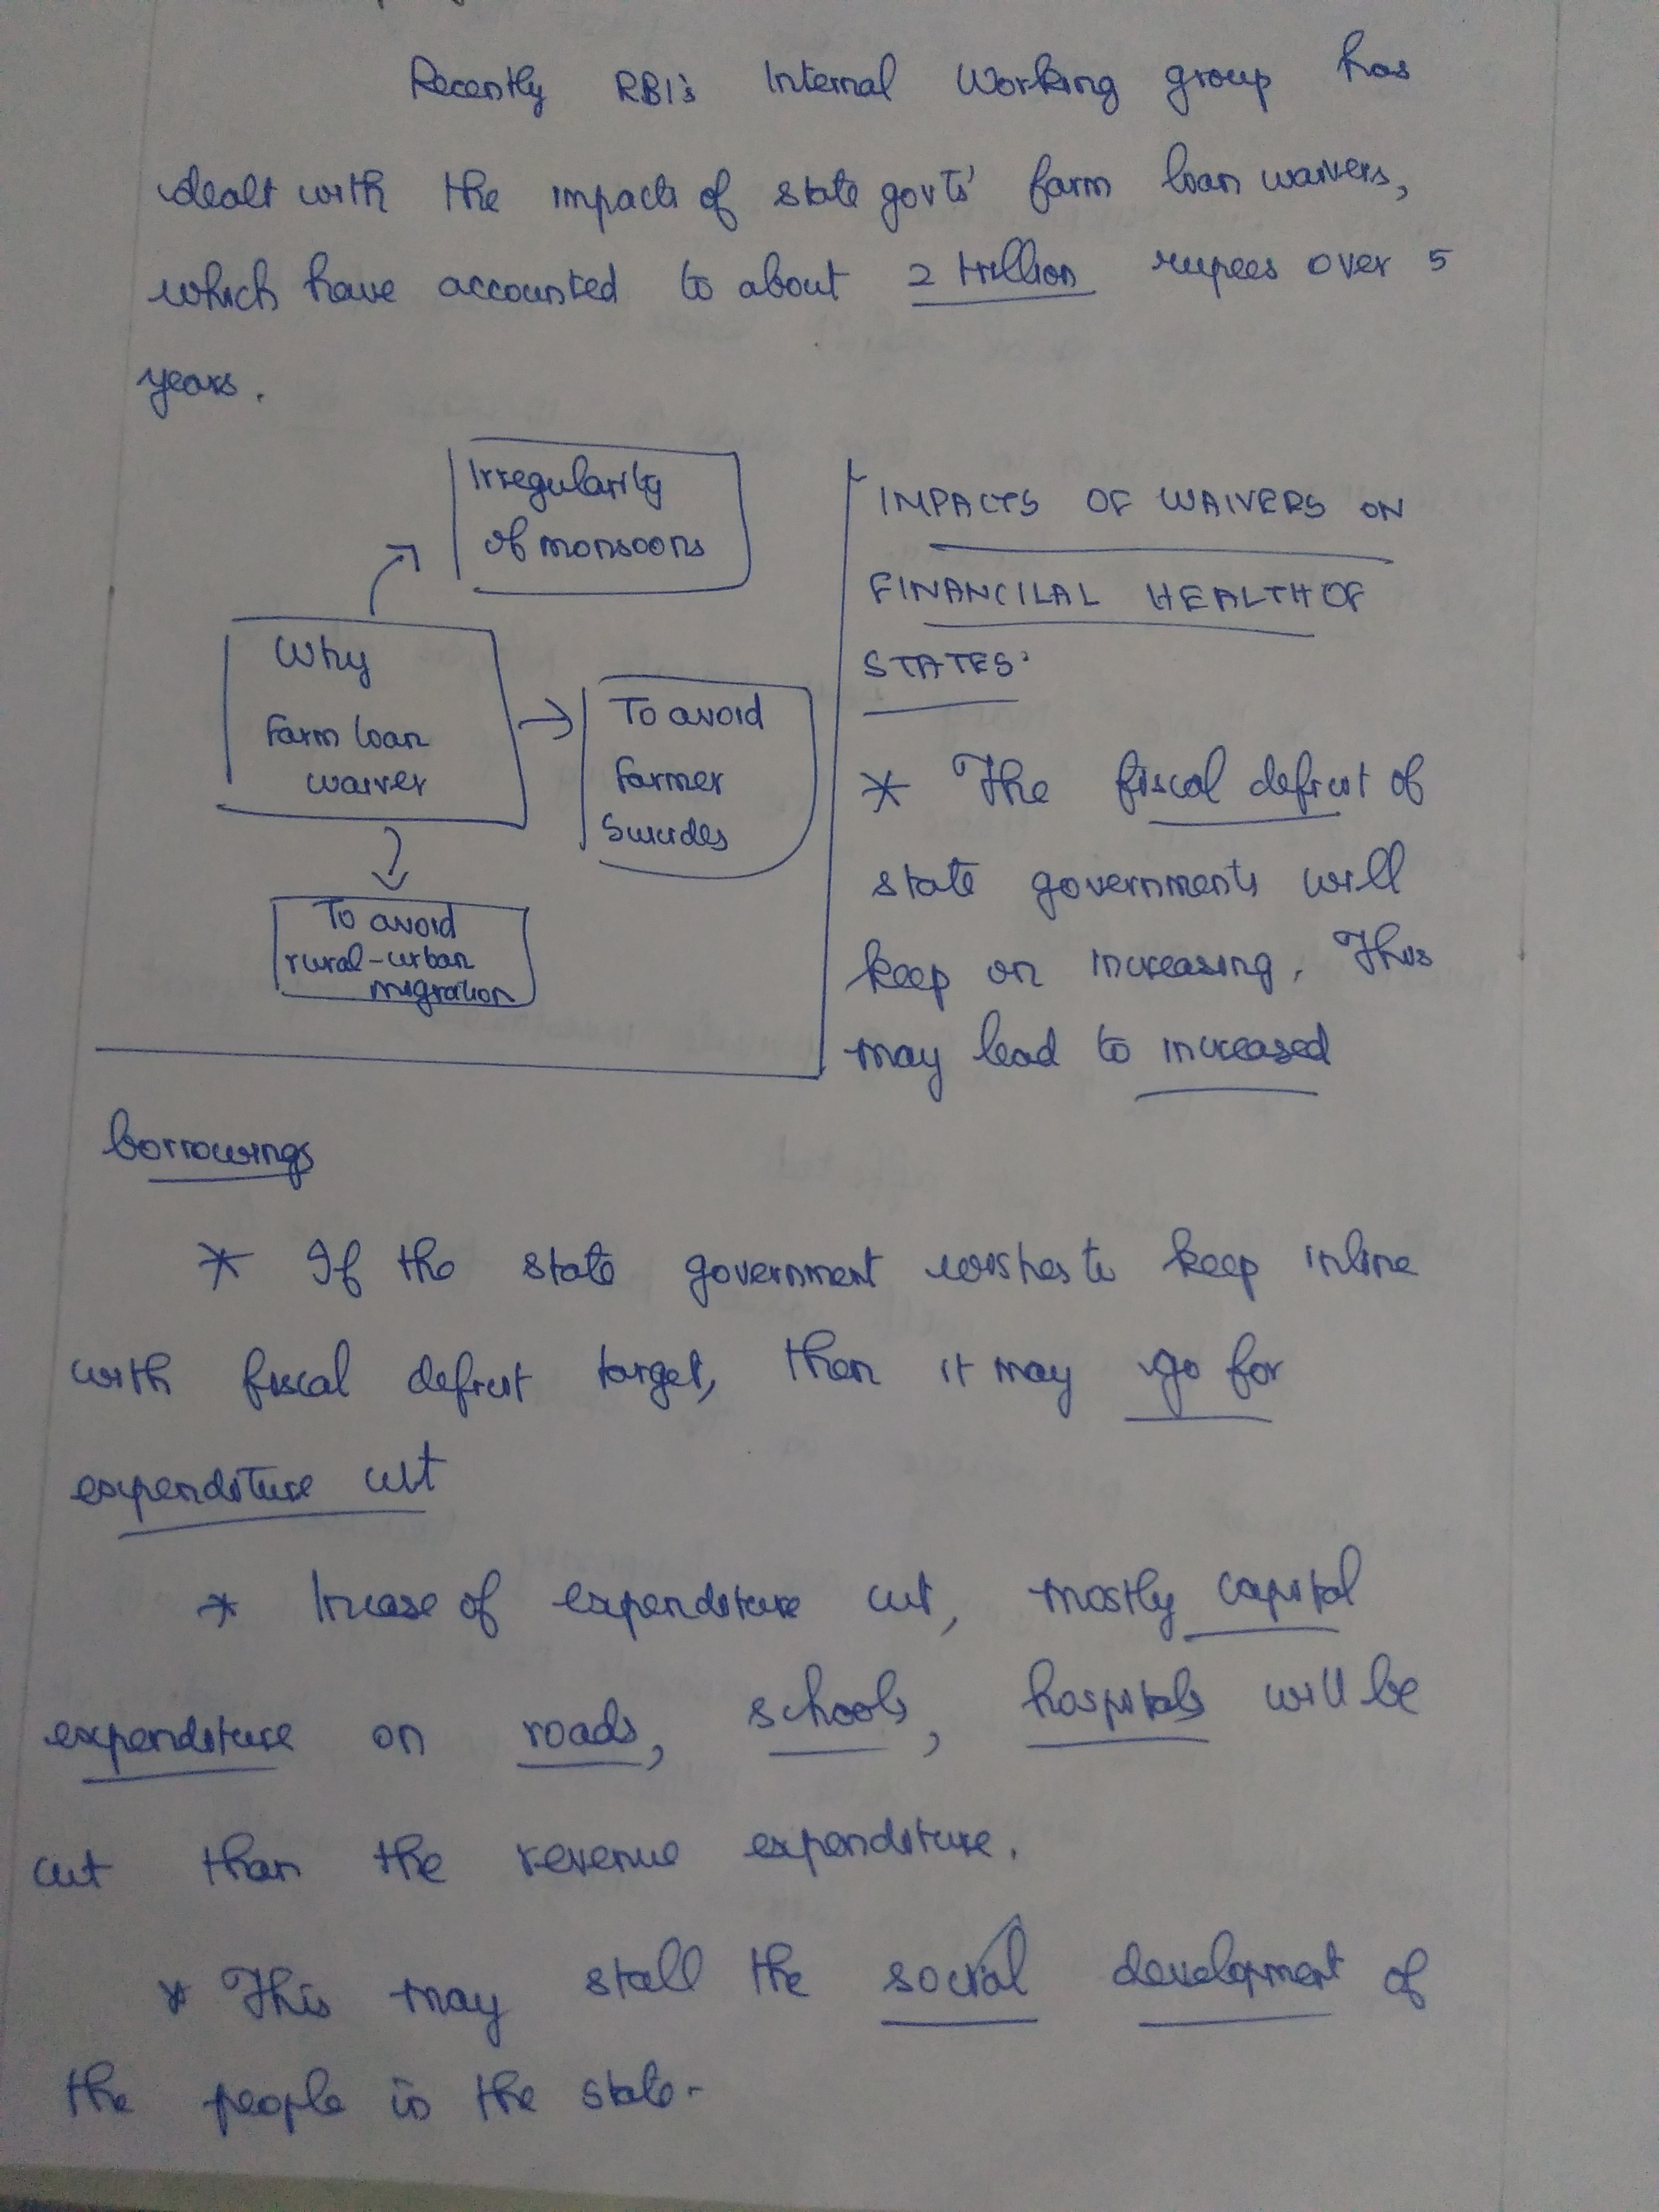 Recently RBI's Internal Working group has
dealt with the impacts of state govts' farm loan waivers,
which have accounted to about 2 trillion rupees over 5
years.
Irregularity
of monsoons
Why
Farm loan
waiver
To avoid
Farmer
Suicides
To avoid
rural-urban
migration
IMPACTS OF WAIVERS ON
FINANCILAL HEALTH OF
STATES:
* The fiscal deficit of
state governments will
keep on increasing. This
may lead to increased
borrowings
* If the state government wishes to keep inline
with fiscal deficit target, then it may go for
expenditure cut
* Incase of expenditure cut, mostly capital
expenditure on roads, schools, hospitals will be
cut than the revenue expenditure.
* This may stall the social development of
the people in the state.